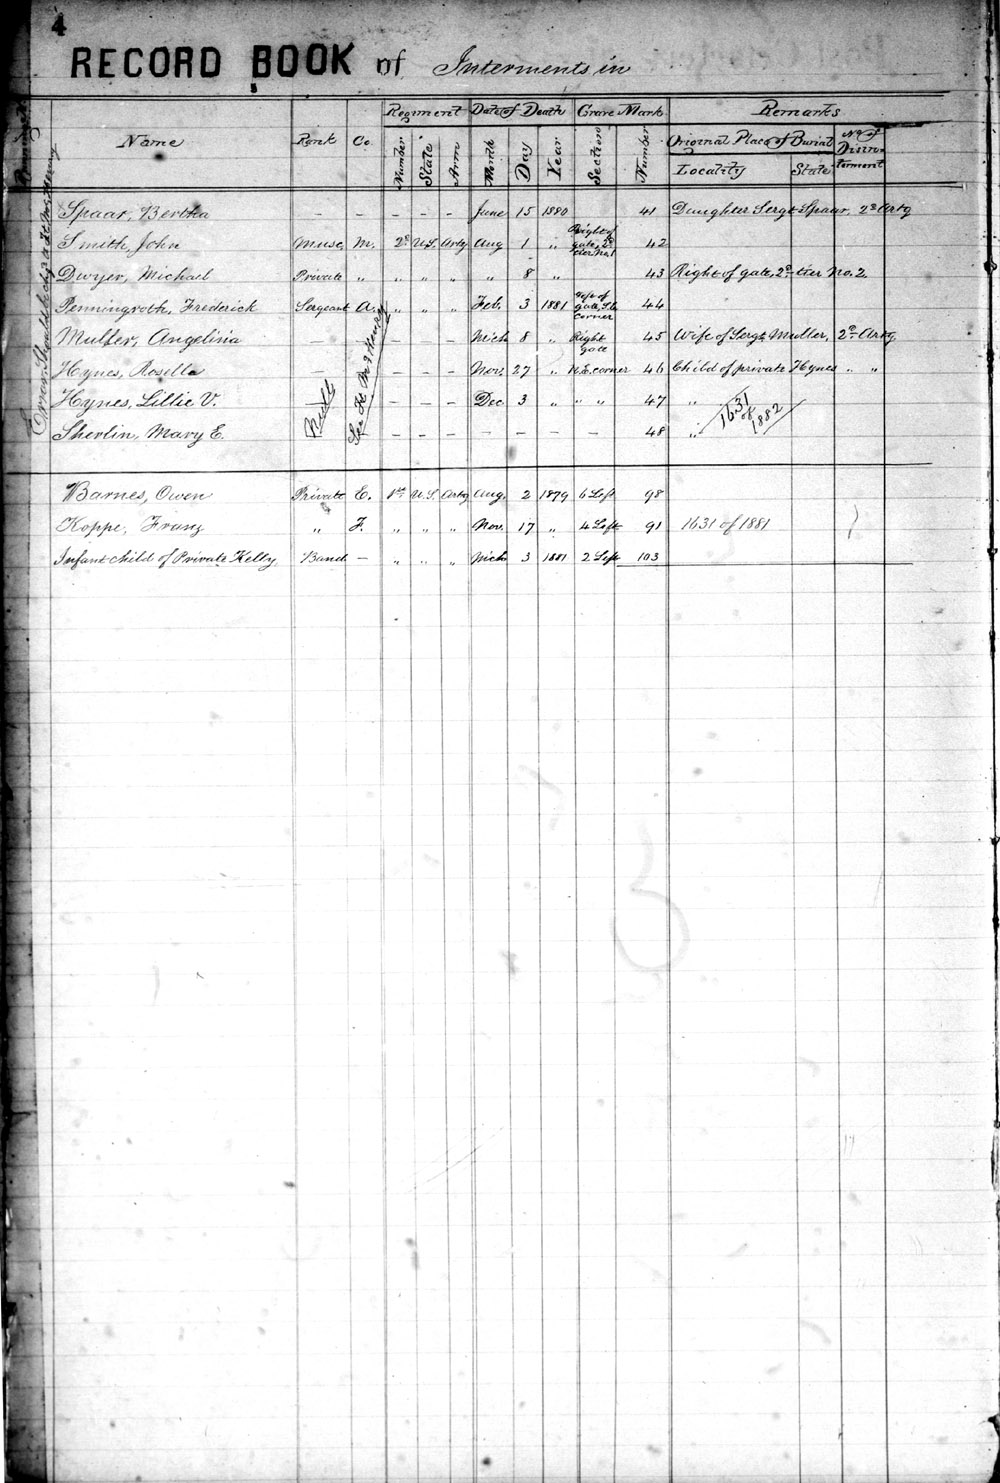 4
RECORD BOOK of Interments in
Regiment Date of Death Grave Mark Remarks
Name Rank Co. Number State Arm Month Day Year Section Number Original Place of Burial No. of Disinterment
Locality State
Error, Should be dep at Ft. McHenry
Spaar, Bertha — — — — — June 15 1880 41 Daughter Sergt Spaar, 2d Arty
Smith, John Music. M. 2d U.S. Arty Aug 1 " Right of gate, 2d tier No. 1 42
Dwyer, Michael Private " " " " " 8 " 43 Right of gate, 2d tier No. 2
Penningroth, Frederick Sergeant A. " " " Feb. 3 1881 Left of gate, S.E. corner 44
Muller, Angelina — — — Mch 8 " Right gate 45 Wife of Sergt Muller, 2d Arty
Hynes, Rosilla — — — — Nov. 27 " N.E. corner 46 Child of private Hynes " "
Hynes, Lillie V. — — — Dec. 3 " " " 47 "
Sherlin, Mary E. — — — — — — — — 48 "
See Ft McHenry
1631 of 1882
Barnes, Owen Private E. 1st U.S. Arty Aug. 2 1879 6 Left 98
Koppe, Franz " F. " " " Nov. 17 " 4 Left 91 1631 of 1881
Infant child of Private Kelly Band — " " " Mch 3 1881 2 Left 103